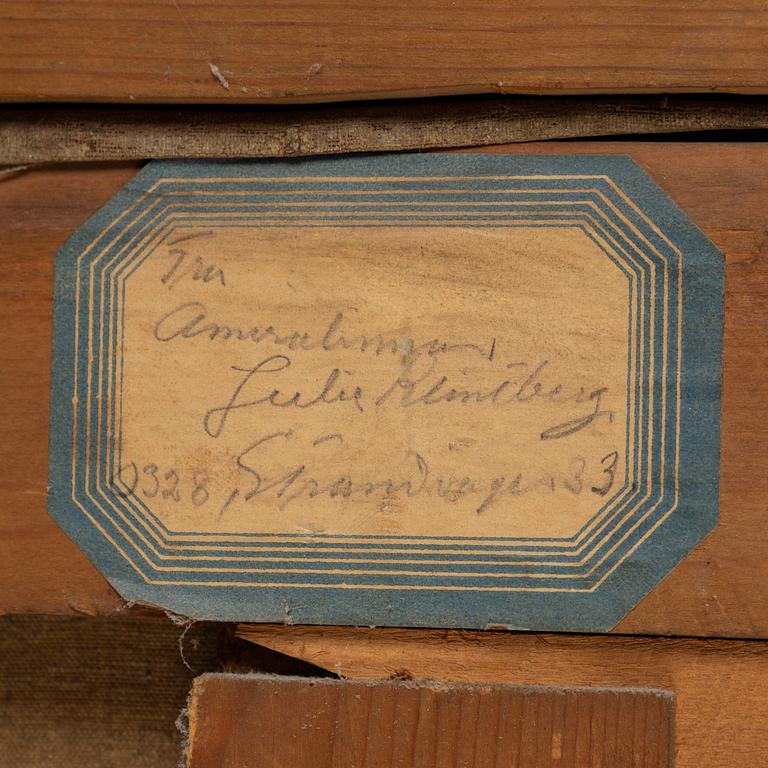 Fru
Amiralinnan
Julie Klintberg
0328, Strandvägen 33